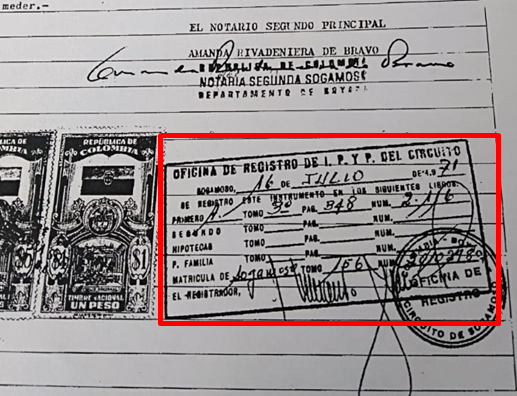 meder.-
EL NOTARIO SEGUNDO PRINCIPAL
AMANDA RIVADENIERA DE BRAVO
REPUBLICA DE COLOMBIA
NOTARIA SEGUNDA SOGAMOSO
DEPARTAMENTO DE BOYACA
REPUBLICA DE
COLOMBIA
$1
TIMBRE NACIONAL
UN PESO
OFICINA DE REGISTRO DE I. P. Y P. DEL CIRCUITO
SOGAMOSO, 16 DE JULIO DE 1.971
SE REGISTRO ESTE INSTRUMENTO EN LOS SIGUIENTES LIBROS:
PRIMERO A. TOMO 3º PAG. 348 NUM. 2.116
SEGUNDO TOMO PAG. NUM.
HIPOTECAS TOMO PAG. NUM.
P. FAMILIA TOMO PAG. NUM.
MATRICULA DE Sogamoso TOMO 156
EL REGISTRADOR,
OFICINA DE
REGISTRO
CIRCUITO DE SOGAMOSO